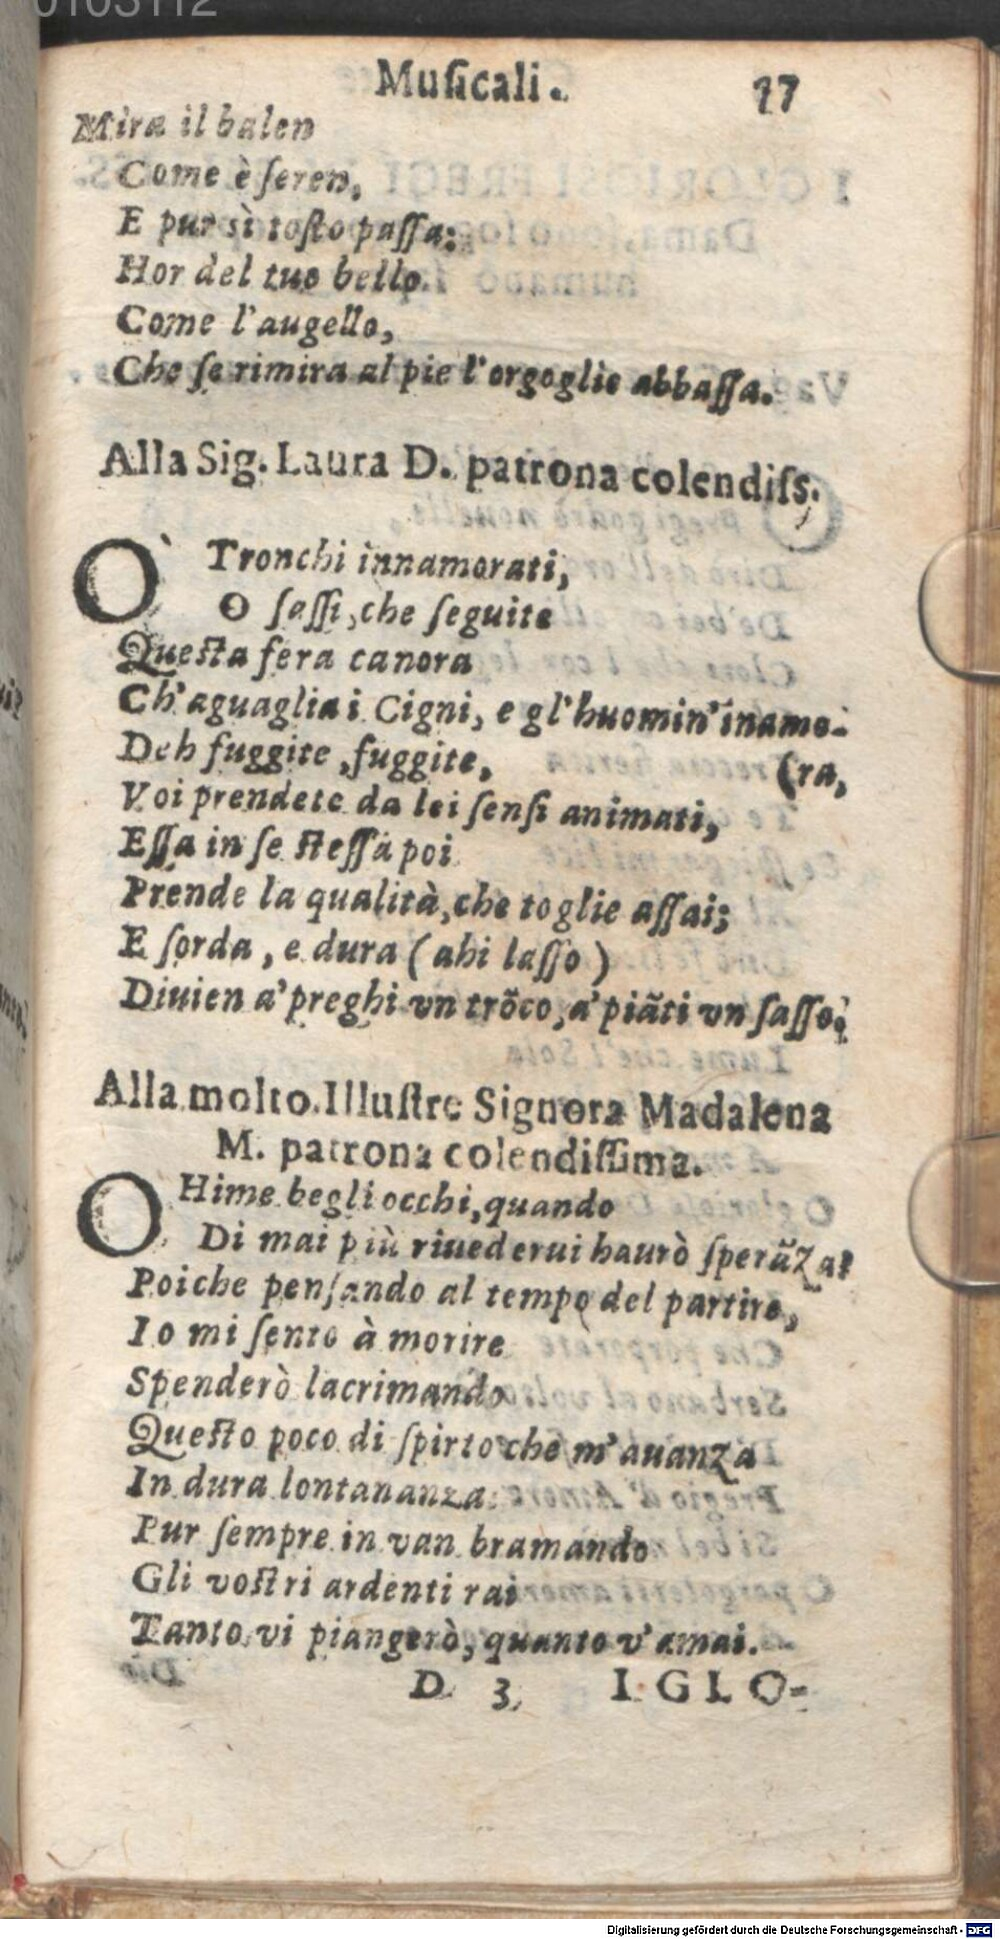 Muſicali. 77
Mira il balen
Come è ſeren,
E pur sì toſto paſſa:
Hor del tuo bello
Come l'augello,
Che ſe rimira al pie l'orgoglio abbaſſa.
Alla Sig. Laura D. patrona colendiſs.
O' Tronchi innamorati,
O ſaſſi, che ſeguite
Queſta fera canora
Ch'aguaglia i Cigni, e gl'huomin'inamo-
Deh fuggite, fuggite, (ra,
Voi prendete da lei ſenſi animati,
Eſſa in ſe ſteſſa poi
Prende la qualità, che toglie aſſai;
E ſorda, e dura (ahi laſſo)
Diuien a'preghi vn trõco, a'piãti vn ſaſſo.
Alla molto Illuſtre Signora Madalena
M. patrona colendiſſima.
OHime begli occhi, quando
Di mai più riuederui haurò ſperãza?
Poiche penſando al tempo del partire,
Io mi ſento à morire
Spenderò lacrimando
Queſto poco di ſpirto che m'auanza
In dura lontananza
Pur ſempre in van bramando
Gli voſtri ardenti rai
Tanto vi piangerò, quanto v'amai.
D 3 I GLO-
Digitalisierung gefördert durch die Deutsche Forschungsgemeinschaft - DFG